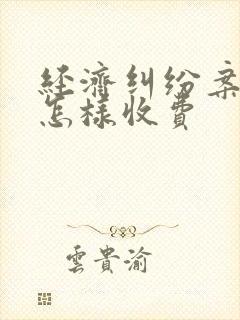 經濟糾紛案
怎樣收費
雲貴渝